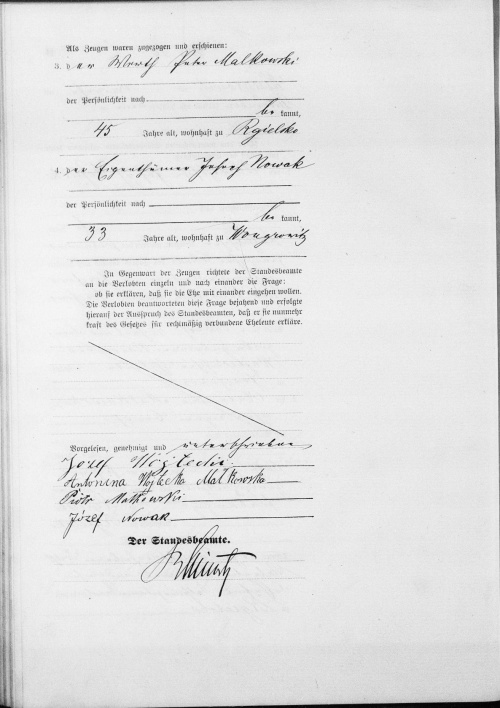 Als Zeugen waren zugezogen und erschienen:
3. der Wirth Peter Malkowski
der Persönlichkeit nach
be kannt,
45 Jahre alt, wohnhaft zu Rgielsko
4. der Eigenthümer Joseph Nowak
der Persönlichkeit nach
be kannt,
33 Jahre alt, wohnhaft zu Wongrowitz
In Gegenwart der Zeugen richtete der Standesbeamte
an die Verlobten einzeln und nach einander die Frage:
ob sie erklären, daß sie die Ehe mit einander eingehen wollen.
Die Verlobten beantworteten diese Frage bejahend und erfolgte
hierauf der Ausspruch des Standesbeamten, daß er sie nunmehr
kraft des Gesetzes für rechtmäßig verbundene Eheleute erkläre.
Vorgelesen, genehmigt und unterschrieben
Józef
Antonina Malkowska
Piotr Malkowski
Józef Nowak
Der Standesbeamte.